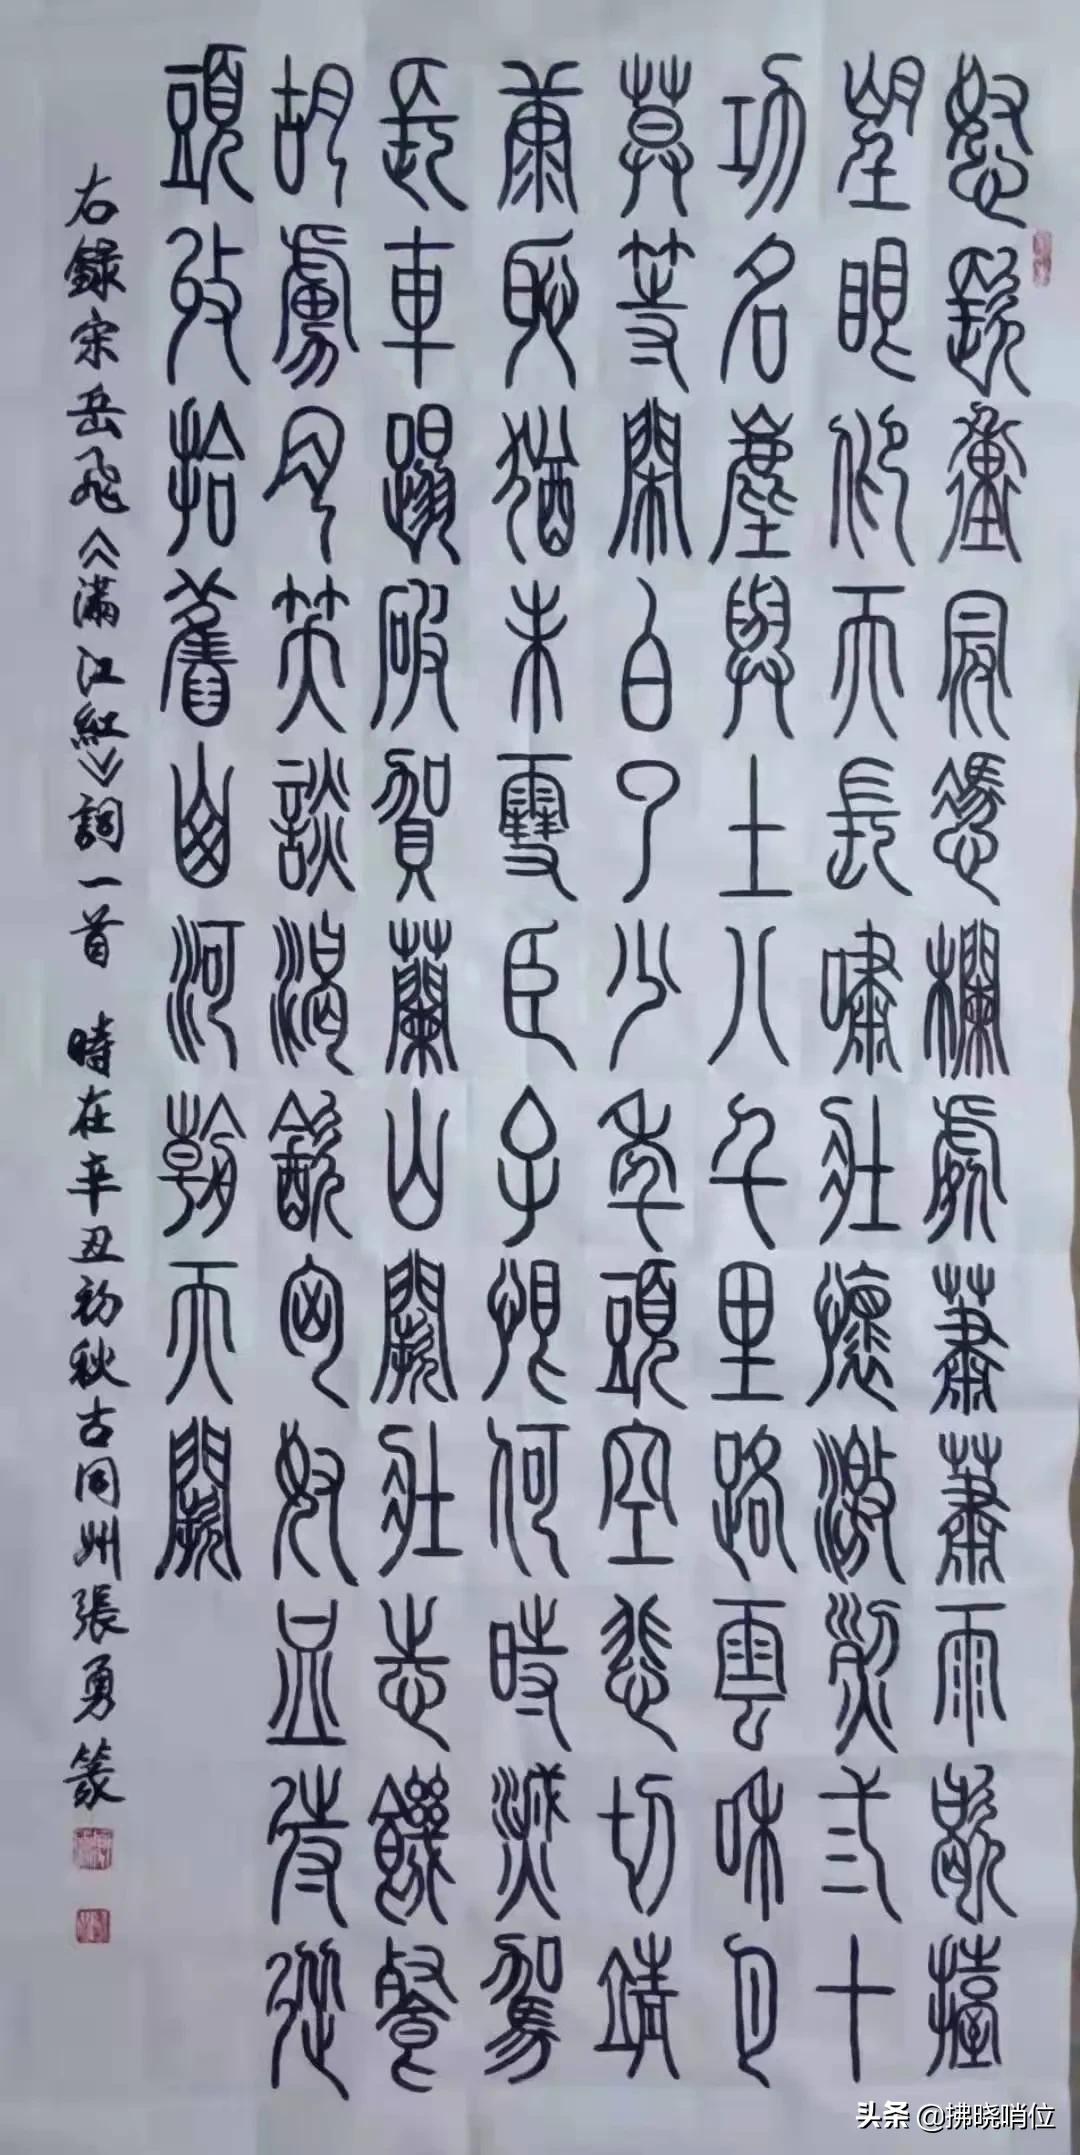 怒髮衝冠憑欄處蕭蕭雨歇擡
望眼仰天長嘯壯懷激烈弎十
功名塵與土八千里路雲咊月
莫等閑白了少年頭空悲切靖
康恥猶未雪臣子恨何時滅駕
長車蹋破賀蘭山闕壯志饑餐
胡虜肉笑談渴飲匈奴血待從
頭收拾舊山河朝天闕
右錄宋岳飛《滿江紅》詞一首 時在辛丑初秋古同州張勇篆
头条 @拂晓哨位